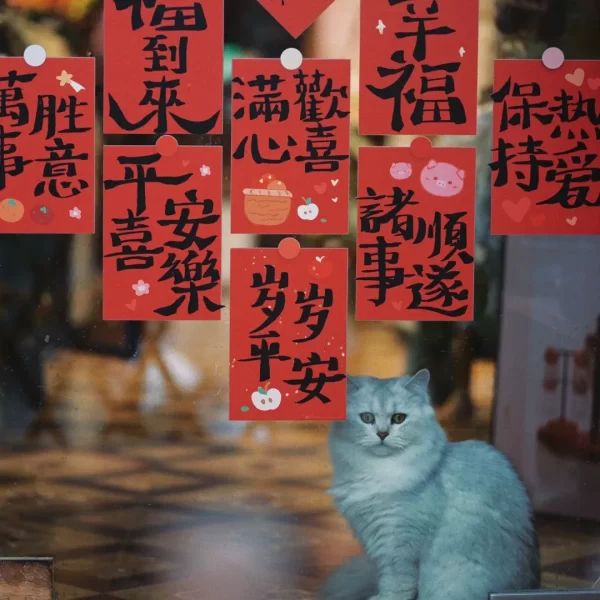 福
到
來
幸
福
萬事
勝意
滿心
歡喜
保持
热爱
平安
喜樂
諸事
順遂
岁岁
平安